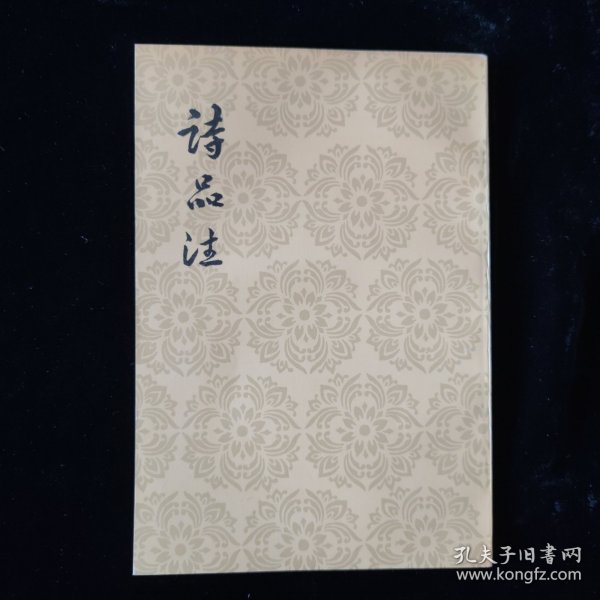 詩品注
孔夫子旧書网
www.kongfz.com